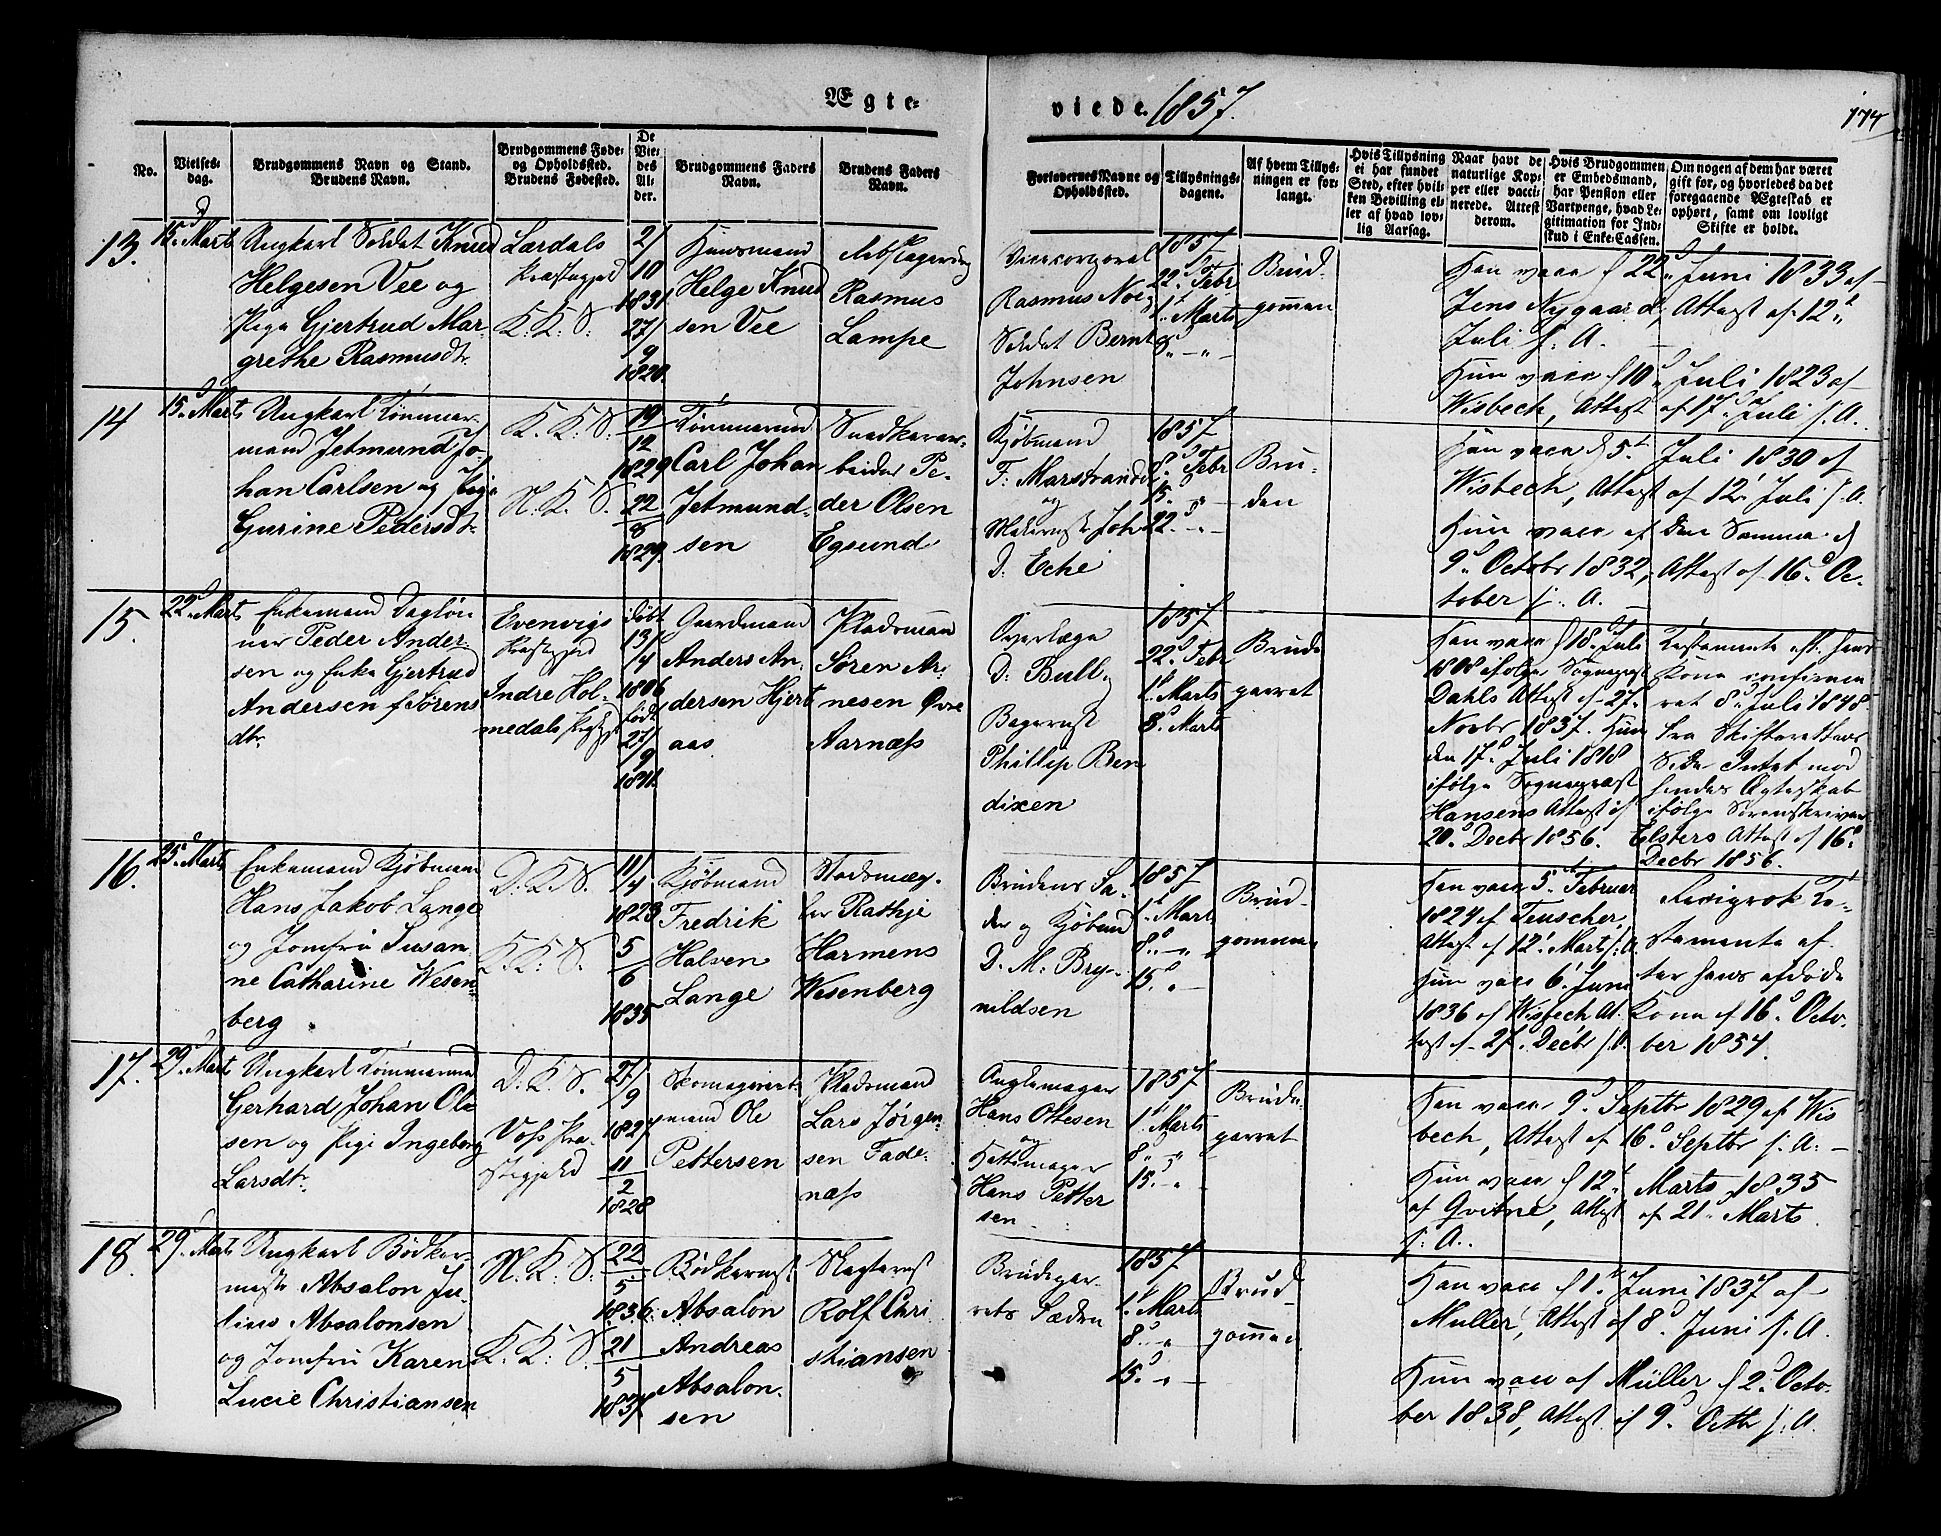 Ægte-
viede 1857.
174
No.
Vielses-
dag.
Brudgommens Navn og Stand.
Brudens Navn.
Brudgommens Føde-
og Opholdssted.
Brudens Fødested.
De
Vie-
des
Al-
der.
Brudgommens Faders
Navn.
Brudens Faders
Navn.
Forlovernes Navne og
Opholdssted.
Tillysnings-
dagene.
Af hvem Tillys-
ningen er for-
langt.
Hvis Tillysning
ei har fundet
Sted, efter hvil-
ken Bevilling el-
ler af hvad lov-
lig Aarsag.
Naar havt de
naturlige Kop-
per eller vacci-
nerede. Attest
derom.
Hvis Brudgommen
er Embedsmand,
har Pension eller
Vartpenge, hvad Le-
gitimation for Ind-
skud i Enke-Cassen.
Om nogen af dem har været
gift før, og hvorledes da det
foregaaende Ægteskab er
ophørt, samt om lovligt
Skifte er holdt.
13.
15d Marts
Ungkarl Soldat Knud
Helgesen Vee og
Pige Gjertrud Mar-
grethe Rasmusdtr
Lærdals
Præstegjeld
K. K. S.
2/
10
1831.
27/
9
1820.
Huusmand
Helge Knud
sen Vee
Rasmus
Lampe
Vicecorporal
Rasmus Noe
Soldat Bernt
Johnsen
1857
22d Febr
1t Marts
8d - " -
Brud-
gommen
Han vacc. d 22d Juni 1833 af
Jens Nygaard, Attest af 12t
Juli s. A.
Hun vacc. d 10d Juli 1823 af
Wisbech, Attest af 17d Juli s. A.
14
15d Marts
Ungkarl Tømmer-
mand Jetmund Jo-
han Carlsen og Pige
Gurine Pedersdtr
K. K. S.
N. K. S.
19
12
1829
22
8
1829.
Tømmermd
Carl Johan
Jetmund-
sen
Snedkerar-
beider Pe-
der Olsen
Egsund
Kjøbmand
F: Marstrand
og
Johs
D. Eche
1857
8d Febr
15. - " -
22d - " -
Bru-
den
Han vacc. d 5t Juli 1830 af
Wisbech, Attest af 12t Juli s. A.
Hun vacc. af den Samme d
9d Octobr 1832, Attest af 16d Oc-
tober s. A.
15.
22d Marts
Enkemand Dagløn-
ner Peder Ander-
sen og Enke Gjertrud
Andersen f Sørens
dtr.
Evenvigs
Præstegjeld
Indre Hol-
medals Præstegj
døbt
13/
4
1806
født
27/
9
1811.
Gaardmand
Anders An-
dersen Hjert
aas
Pladsmand
Søren Ar-
nesen Øvre
Aarnæss
Overlæge
D. Bull
Bagermst
Phillip Ben
dixen
1857
22d Febr
1t Marts
8d Marts
Brud
gommen
Han vacc. d 18d Juli
1808 ifølge Sognepræst
Dahls Attest af 27.
Novbr 1837. Hun
den 17d Juli 1818
ifølge Sognepræst
Hansens Attest af
20d Decbr 1856.
Testamente eft. hans
Kone confirme
ret 8d Juli 1848
fra Skifterettens
Side Intet mod
hendes Ægteskab
ifølge Sorenskriver
Elsters Attest af 16d
Decbr 1856.
16.
25d Marts
Enkemand Kjøbmand
Hans Jakob Lange
og Jomfru Susan-
ne Catharine Wesen-
berg
D. K. S.
K. K. S.
11/
4
1823
5
6
1835
Kjøbmand
Fredrik
Halven
Lange
Stadsmæg-
ler Rathje
Harmens
Wesenberg
Brudens Fa-
der og Kjøbmd
D. M. Bry-
nildsen
1857
1t Marts
8d - " -
15d - " -
Brud-
gommen
Han vacc. 5t Februar
1824 af Teuscher,
Attest af 12t Marts s. A.
Hun vacc. 6t Juni
1836 af Wisbech At
test af 27. Decbr s. A.
Testamente ef-
ter hans afdøde
Kone af 16d Octo-
ber 1854.
17.
29d Marts
Ungkarl Tømmermd
Gerhard Johan Ole
sen og Pige Ingeborg
Larsdtr
D. K. S.
Voss Præ-
stegjeld
27/
9
1827
11
2
1828
mand Ole
Pettersen
Pladsmand
Lars Jørgen-
sen Fade-
næss
Hans Ottesen
og
Hattemager
Hans Petter
sen
1857
1t Marts
8d - " -
15d - " -
Brud-
Han vacc. 9d Septbr 1829 af Wis
bech, Attest af 16d Septbr s. A. -
Hun vacc. d 12t Marts 1835
af Qvitne, Attest af 21d Marts
s. A.
18.
29d Marts
Ungkarl Bødker-
mestr Absalon Ju-
lius Absalonsen
og Jomfru Karen
Lucie Christiansen
N. K. S.
K. K. S.
22
5
1836.
21
5
1837.
Bødkermst
Absalon
Andreas
Absalon-
sen
Slagtermst
Rolf Chri
stiansen
Brudepar-
rets Fædre
1857
1t Marts
8d - " -
15d - " -
Brud
gommen
Han vacc. d 1t Juni 1837 af
Müller, Attest af 8d Juni s. A.
Hun vacc. af Müller d 2d Octo-
ber 1838, Attest af 9d Octbr s. A.